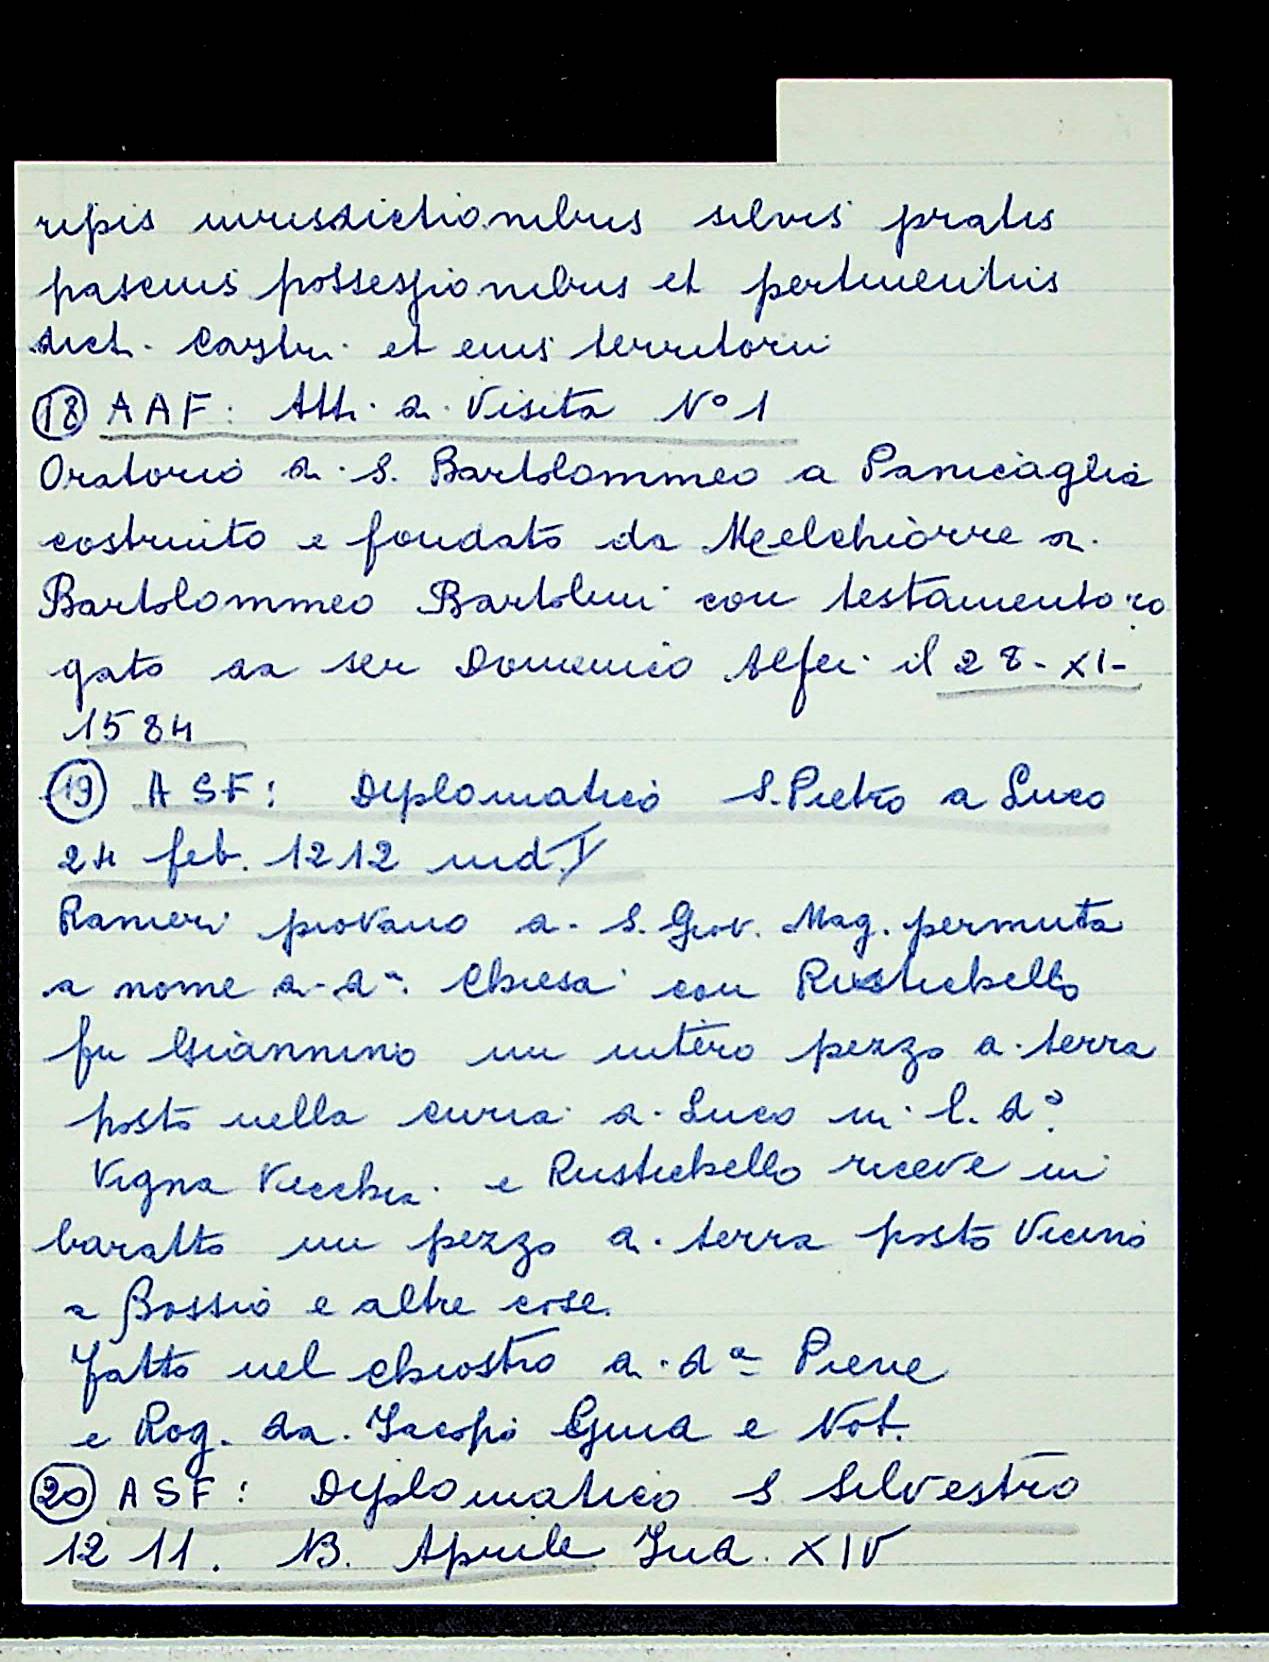 ripis iurisdictionibus silvis pratis
pascuis possessionibus et pertinentiis
dict. Castri et eius territorii
(18) AAF: Atti di Visita N° 1
Oratorio di S. Bartolommeo a Panicaglia
costruito e fondato da Melchiorre di
Bartolommeo Bartolini con testamento ro
gato da ser Domenico il 28-XI-
1584
(19) ASF: Diplomatico S. Pietro a Luco
24 feb. 1212 ind. V
Ranieri piovano di S. Giov. Mag. permuta
a nome di dª. Chiesa con Rustichello
fu Giannino un intero pezzo di terra
posto nella curia di Luco in l. d°.
Vigna Vecchia e Rustichello riceve in
baratto un pezzo di terra posto vicino
a Bossio e altre cose.
Fatto nel chiostro di dª Pieve
e Rog. da Iacopo Giud e Not.
(20) ASF: Diplomatico S Silvestro
1211. 13. Aprile Ind. XIV